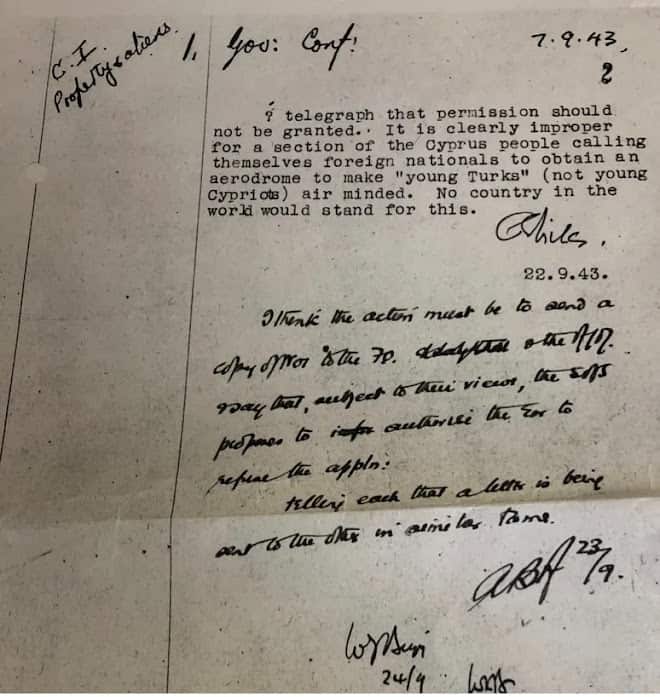 C.I.
Property & aliens.
1. Gov: Conf: 7.9.43.
2
? telegraph that permission should
not be granted. It is clearly improper
for a section of the Cyprus people calling
themselves foreign nationals to obtain an
aerodrome to make "young Turks" (not young
Cypriots) air minded. No country in the
world would stand for this.
22.9.43.
I think the action must be to send a
copy of No1 to the FO. & the
say that, subject to their views, the SofS
proposes to authorise the Gov to
refuse the appln:
telling each that a letter is being
sent to the other in similar terms.
23/9.
24/9